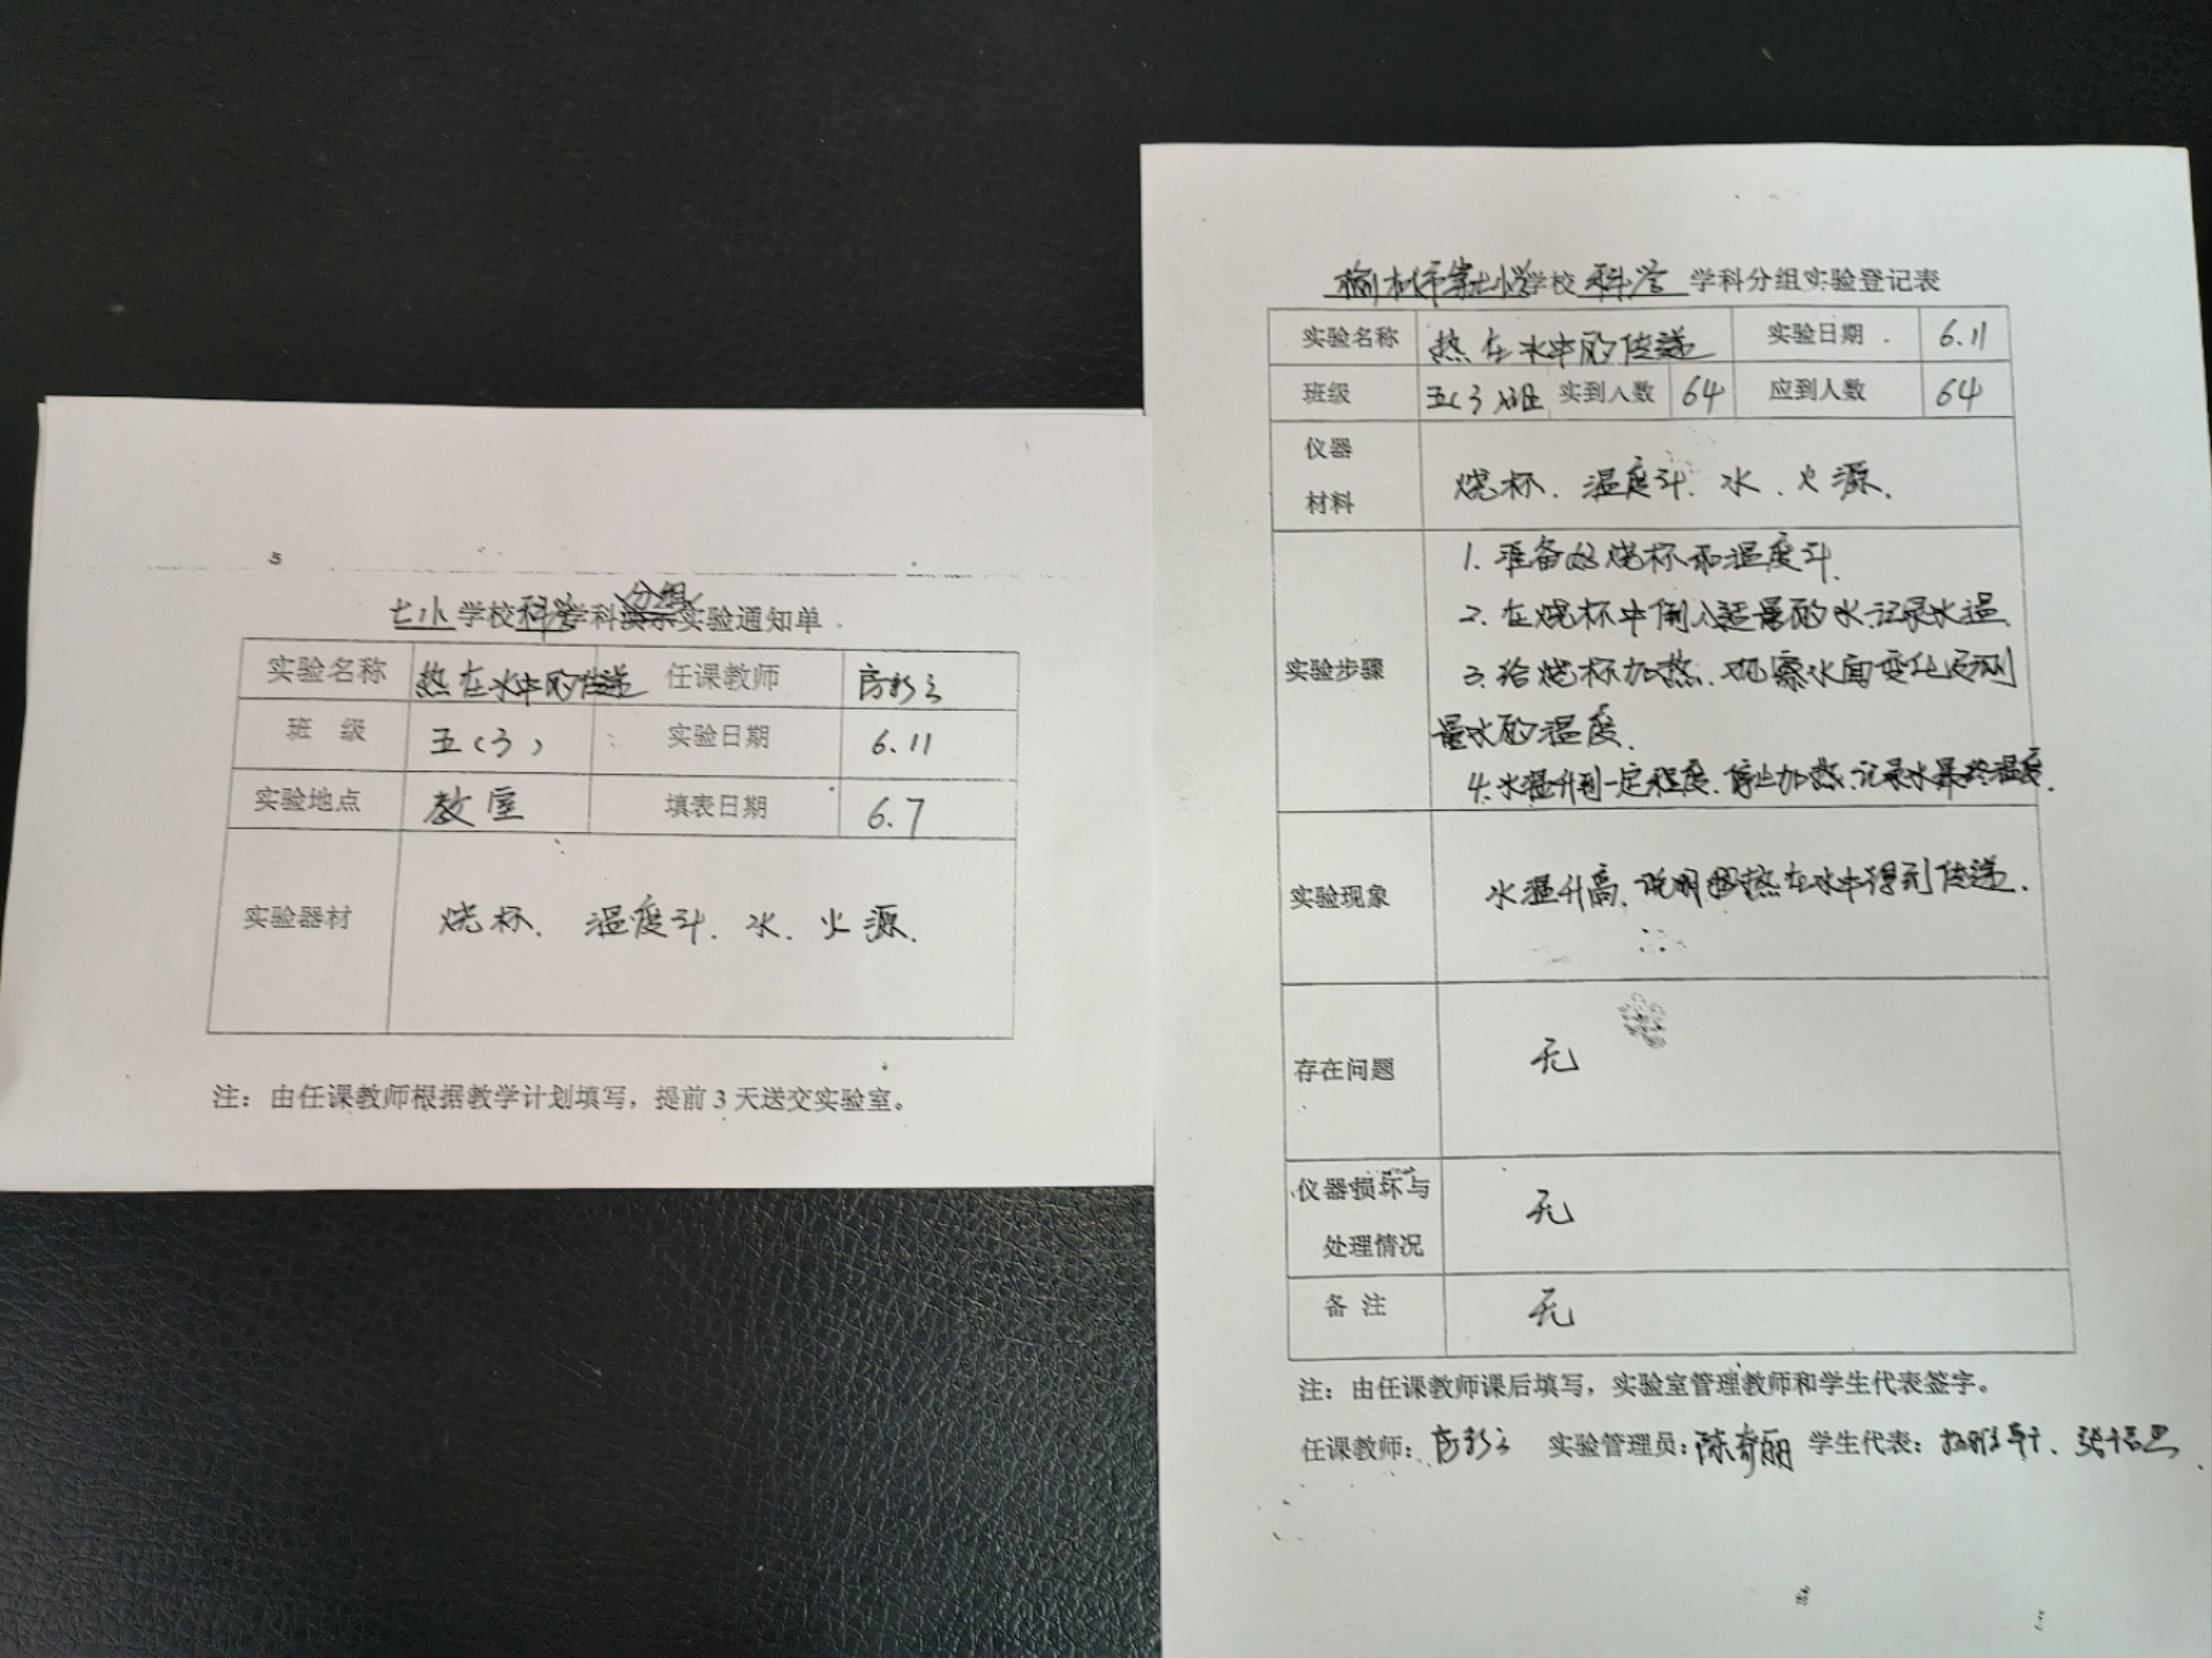 七小学校科学学科分组实验通知单
实验名称 热在水中的传递 任课教师
班 级 五(3) 实验日期 6.11
实验地点 教室 填表日期 6.7
实验器材 烧杯、温度计、水、火源.
注：由任课教师根据教学计划填写，提前3天送交实验室。
榆林市第七小学学校 科学 学科分组实验登记表
实验名称 热在水中的传递 实验日期 6.11
班级 五(3)班 实到人数 64 应到人数 64
仪器
材料
烧杯、温度计、水、火源.
实验步骤
1. 准备好烧杯和温度计.
2. 在烧杯中倒入适量的水,记录水温.
3. 给烧杯加热、观察水面变化及测
量水的温度.
4. 水温升到一定程度、停止加热、记录水最终温度.
实验现象 水温升高、说明热在水中得到传递.
存在问题 无
仪器损坏与
处理情况
无
备 注 无
注：由任课教师课后填写，实验室管理教师和学生代表签字。
任课教师： 实验管理员：陈奇丽 学生代表：